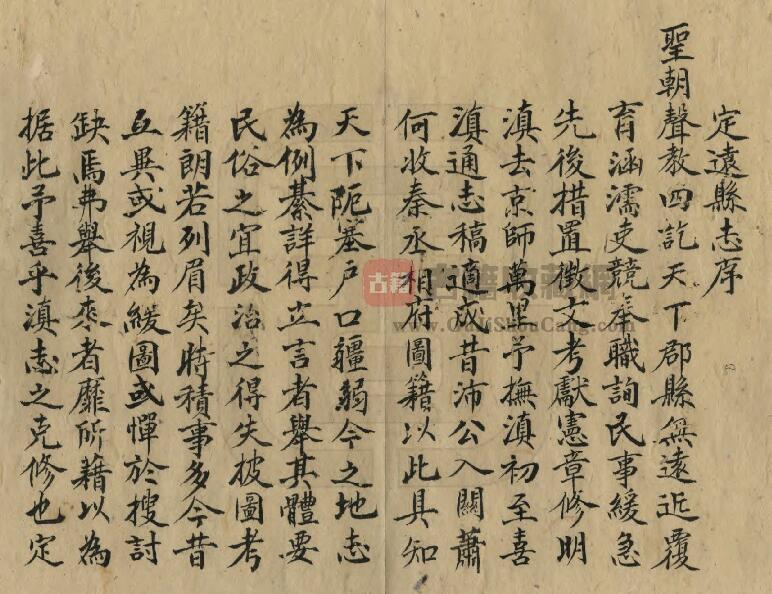 定遠縣志序
聖朝聲教四訖天下郡縣無遠近覆
育涵濡吏競奉職詢民事緩急
先後措置徵文考獻憲章修明
滇去京師萬里予撫滇初至喜
滇通志稿適成昔沛公入關蕭
何收秦丞相府圖籍以此具知
天下阨塞戶口疆弱今之地志
為例綦詳得立言者舉其體要
民俗之宜政治之得失披圖考
籍朗若列眉矣時積事多今昔
互異或視為緩圖或憚於搜討
缺焉弗舉後來者靡所藉以為
据此予喜乎滇志之克修也定
古籍